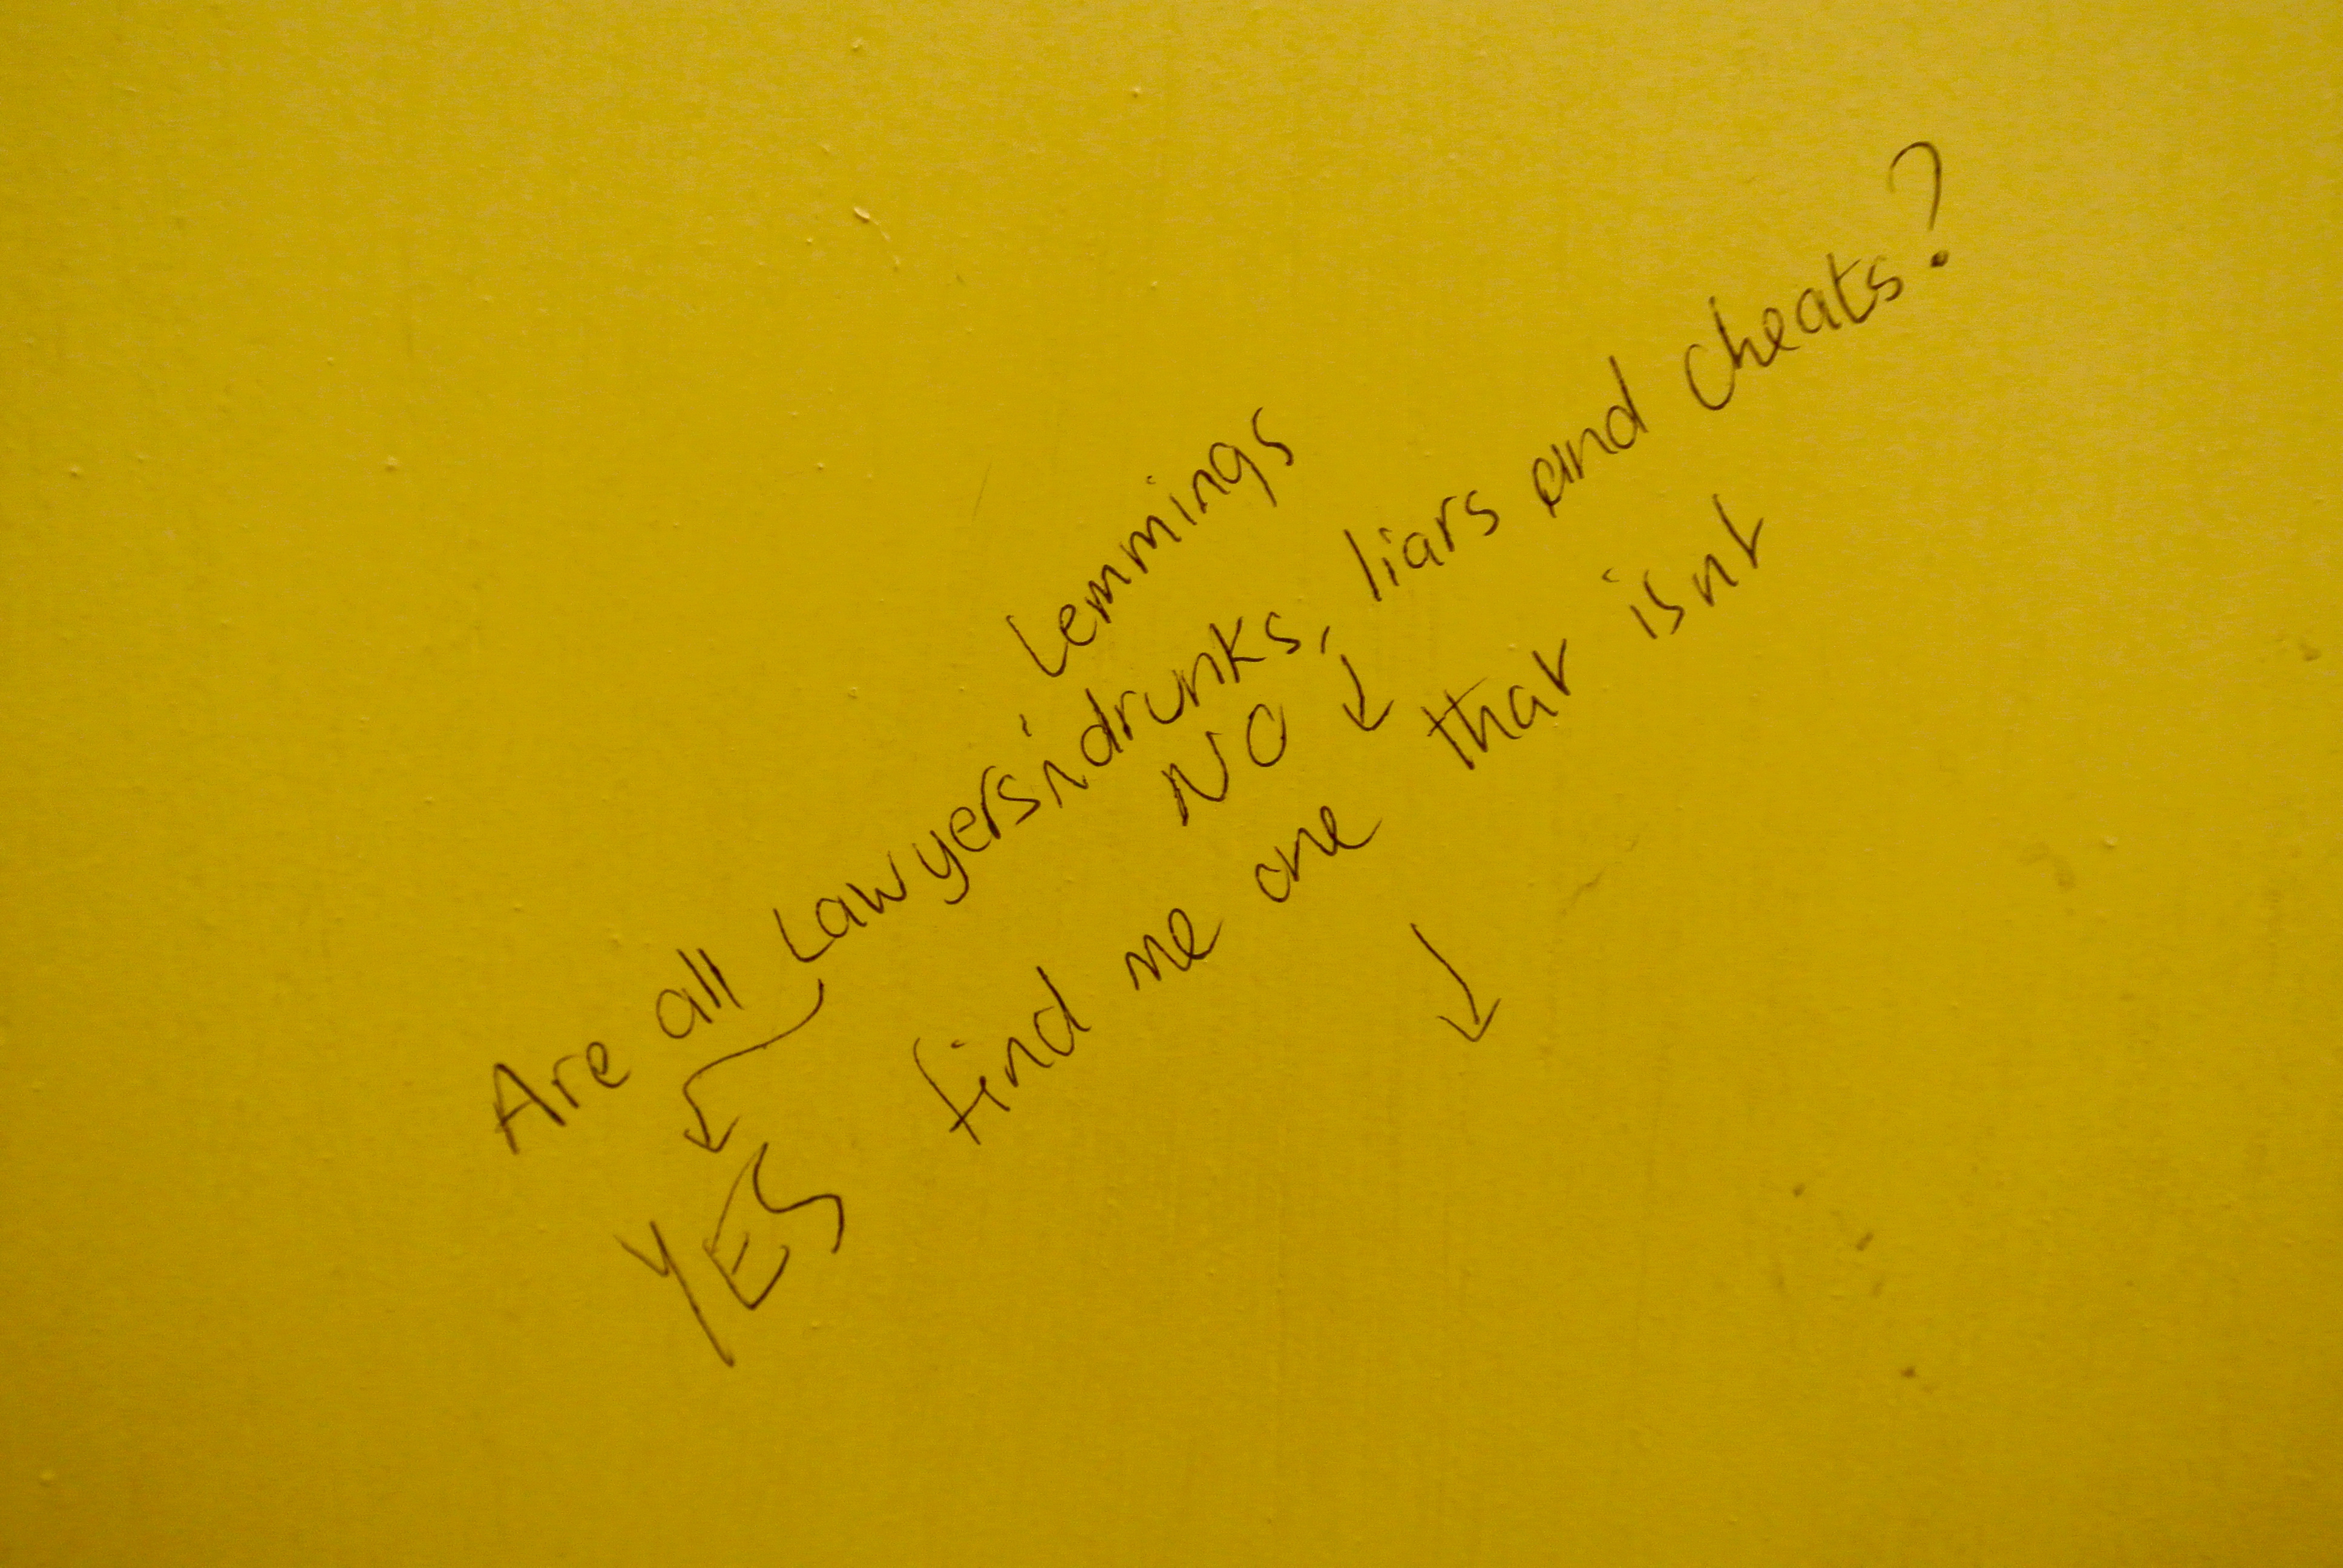 Lemmings
Are all Lawyers drunks, liars and cheats?
NO
find me one that isnt
YES